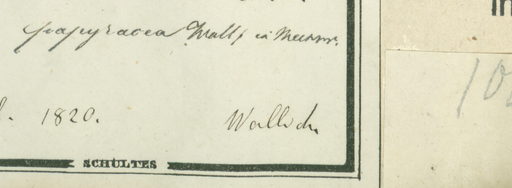 papyracea Wall. in
1820. Wallich
SCHULTES
In
10